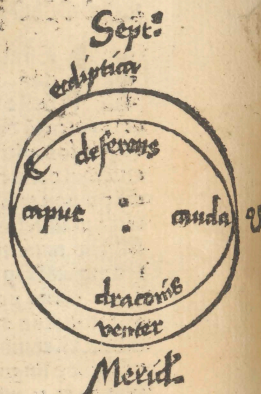 Sept:
ecliptica
deferens
caput cauda
draconis
venter
Merid: